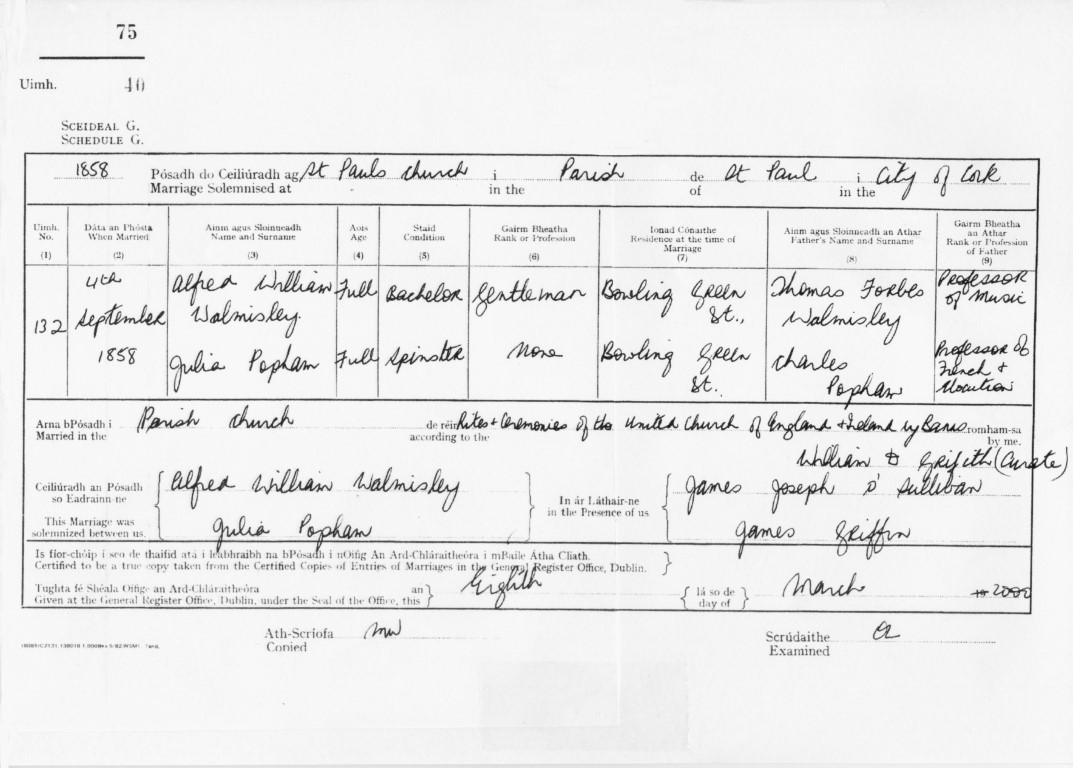 75
Uimh. 40
SCEIDEAL G.
SCHEDULE G.
1858 Pósadh do Ceiliúradh ag St Pauls Church i Parish de St Paul i City of Cork
Marriage Solemnised at in the of in the
Uimh. Dáta an Phósta Ainm agus Sloinneadh Aois Staid Gairm Bheatha Ionad Cónaithe Ainm agus Sloinneadh an Athar Gairm Bheatha
No. When Married Name and Surname Age Condition Rank or Profession Residence at the time of Father's Name and Surname an Athar
Marriage Rank or Profession
of Father
(1) (2) (3) (4) (5) (6) (7) (8) (9)
4th Alfred William Full Bachelor Gentleman Bowling Green Thomas Forbes Professor
132 September Walmisley. St., Walmisley of Music
1858 Julia Popham Full Spinster None Bowling Green Charles Professor of
St. Popham French +
Elocution
Arna bPósadh i Parish Church de réir Rites + Ceremonies of the United Church of England + Ireland by Banns romham-sa
Married in the according to the by me.
William Griffith (Curate)
Ceiliúradh an Pósadh Alfred William Walmisley In ár Láthair-ne James Joseph O'Sullivan
so Eadrainn-ne in the Presence of us
This Marriage was
solemnized between us. Julia Popham James Griffin
Is fíor-chóip í seo de thaifid atá i leabhraibh na bPósadh i nOifig An Ard-Chláraitheóra i mBaile Átha Cliath.
Certified to be a true copy taken from the Certified Copies of Entries of Marriages in the General Register Office, Dublin.
Tughta fé Shéala Oifige an Ard-Chláraitheóra an Eighth lá so de March 19 2000
Given at the General Register Office, Dublin, under the Seal of the Office, this day of
Ath-Scríofa mw Scrúdaithe
Copied Examined